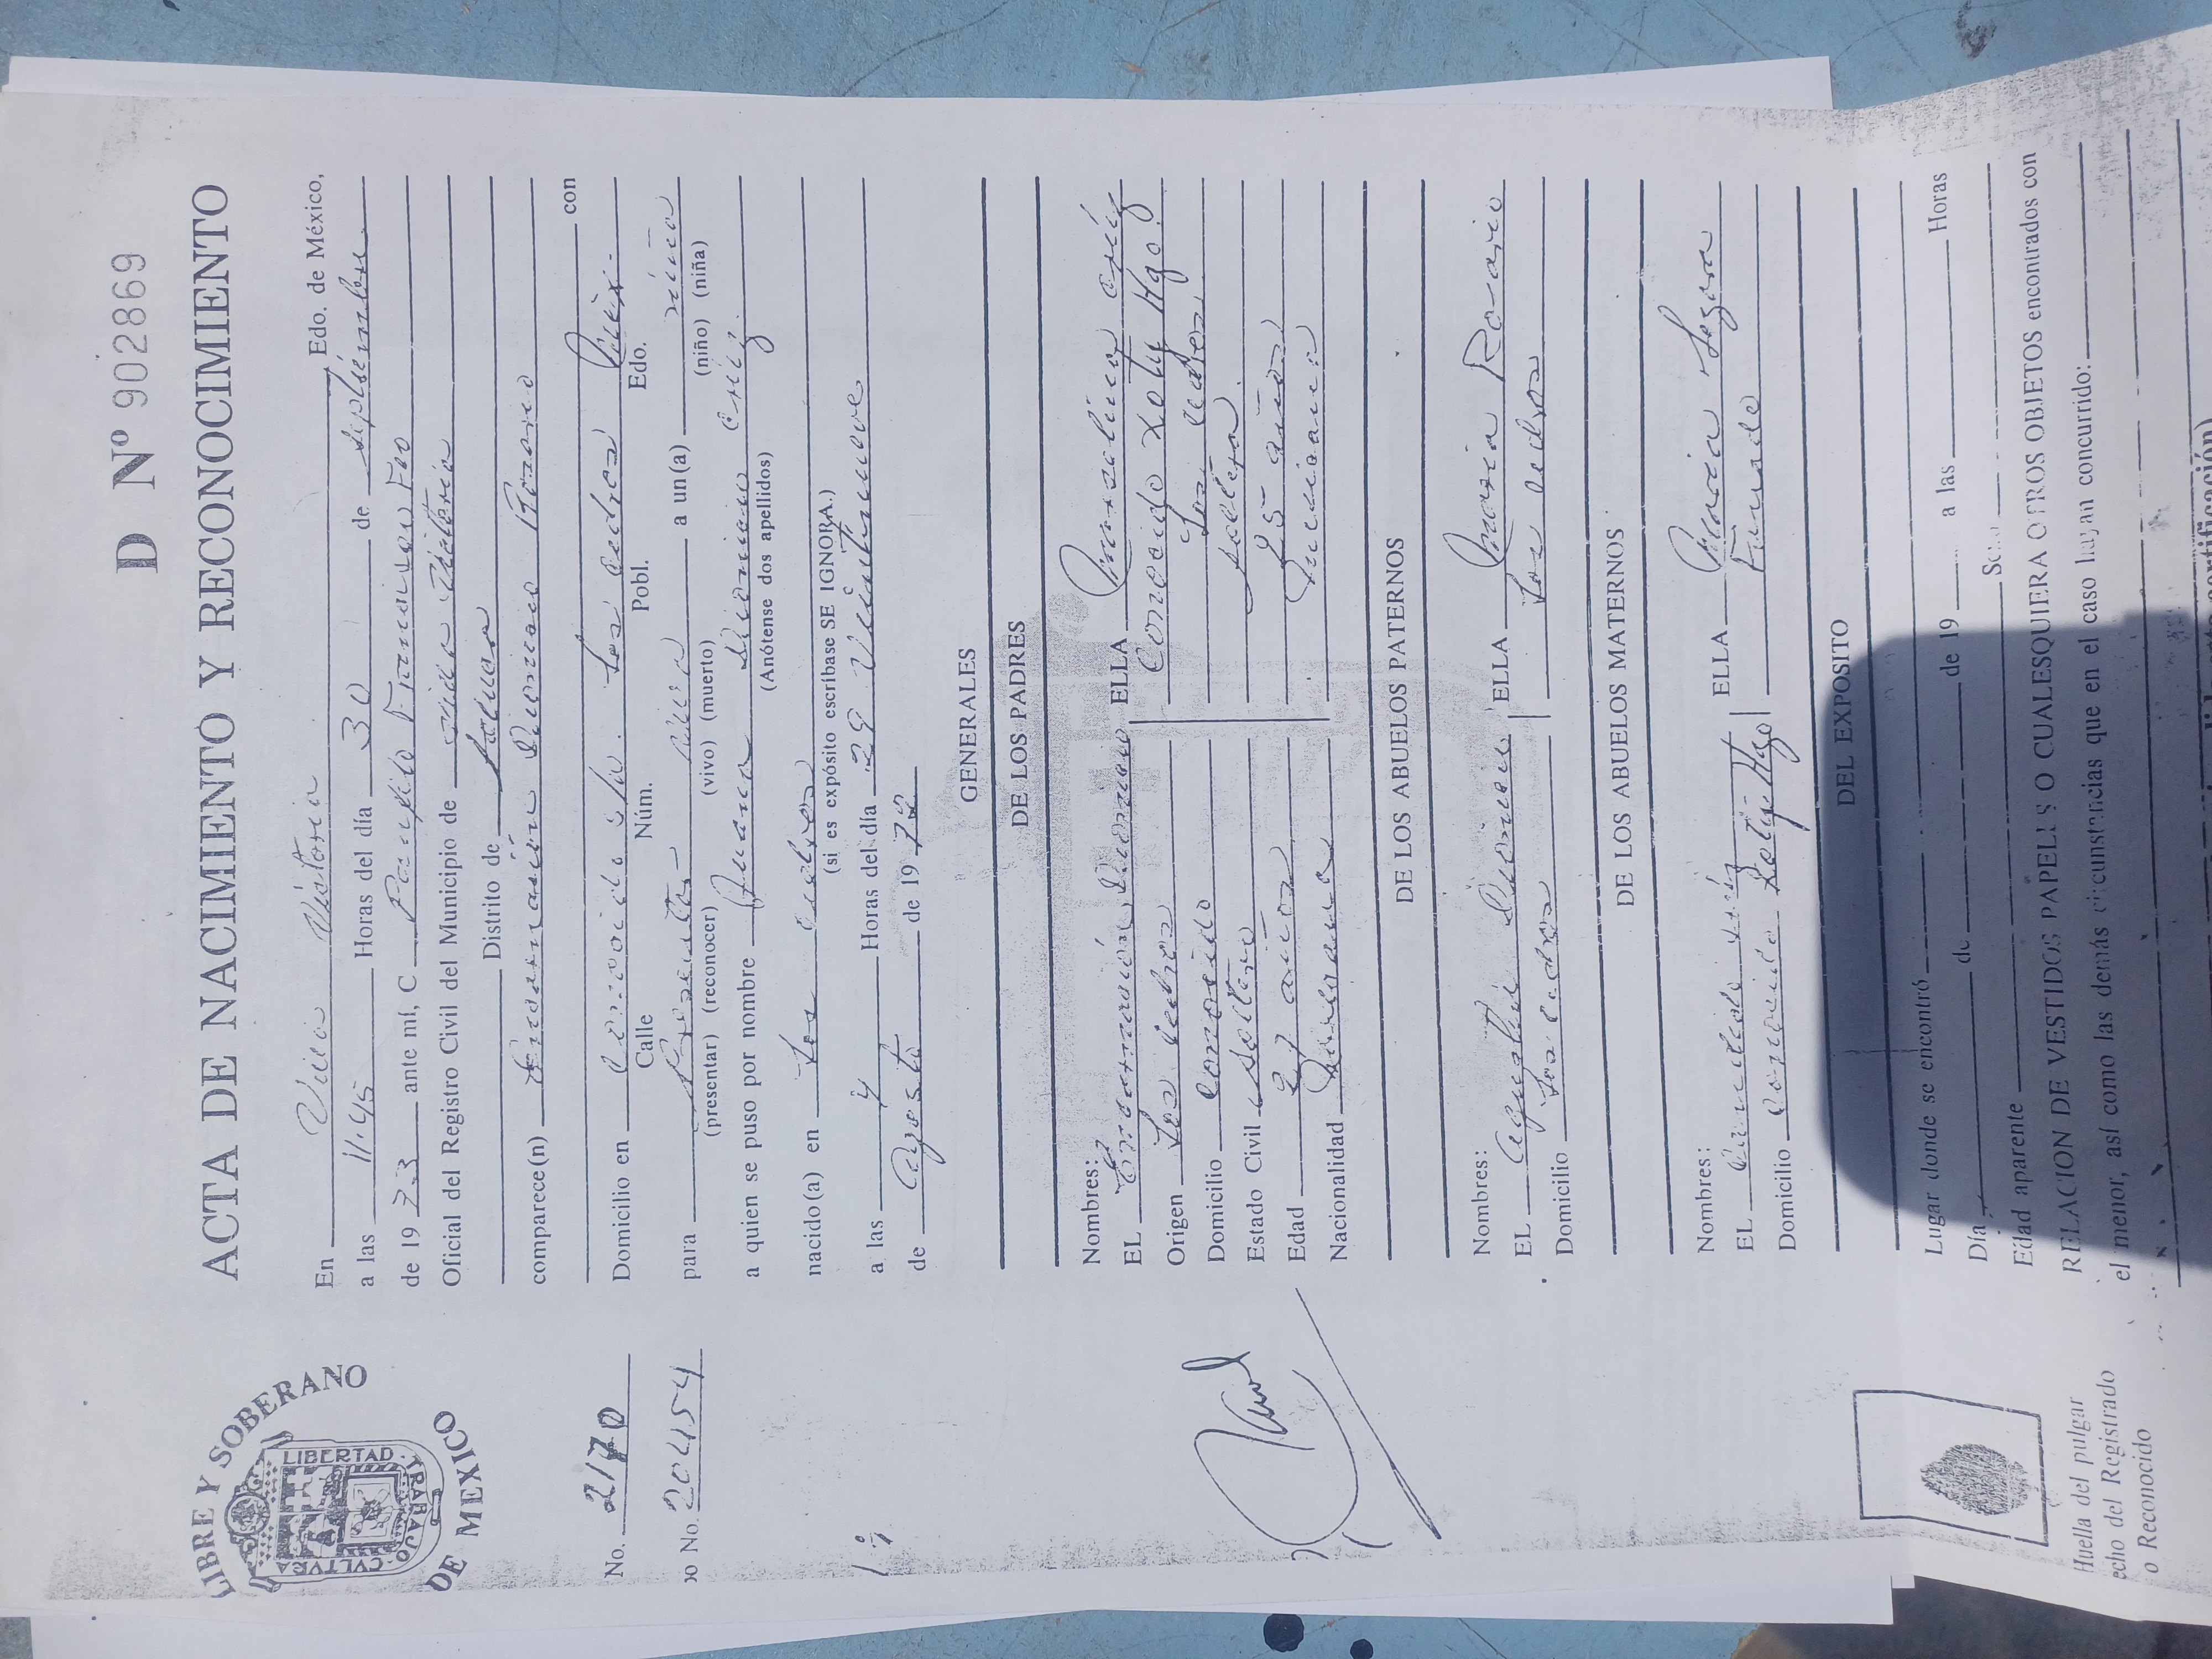 D Nº 902869
ACTA DE NACIMIENTO Y RECONOCIMIENTO
LIBRE Y SOBERANO
DE MEXICO
LIBERTAD
TRABAJO
CVLTVRA
En Villa Victoria Edo. de México,
a las 11.45 Horas del día 30 de septiembre.
de 19 73 ante mí, C Panfilo Fco
Oficial del Registro Civil del Municipio de Villa Victoria
Distrito de
comparece(n) Encarnación Rosario
con
Domicilio en conocido s/n. Los cedros Méx.
Calle Núm. Pobl. Edo.
para presentar viva a un(a) niña
(presentar) (reconocer) (vivo) (muerto) (niño) (niña)
a quien se puso por nombre Juana Cruz.
(Anótense dos apellidos)
nacido(a) en Los cedros
(si es expósito escríbase SE IGNORA.)
a las 4 Horas del día 29 Veintinueve
de Agosto de 19 72
No. 2170
No. 20454
GENERALES
DE LOS PADRES
Nombres:
EL Encarnación ELLA Marcelina Cruz
Origen Los cedros Conocido Hgo.
Domicilio conocido Los cedros
Estado Civil soltero soltera.
Edad 27 años 25 años
Nacionalidad Mexicana Mexicana
DE LOS ABUELOS PATERNOS
Nombres:
EL Agustín ELLA Maria Rosario
Domicilio Los cedros Los cedros
DE LOS ABUELOS MATERNOS
Nombres:
EL Cruz ELLA Maria
Domicilio conocido Hgo Finado
DEL EXPOSITO
Lugar donde se encontró
Día de de 19 a las Horas
Edad aparente
RELACION DE VESTIDOS PAPELES O CUALESQUIERA OTROS OBJETOS encontrados con
el menor, así como las demás circunstancias que en el caso hayan concurrido:
Huella del pulgar
echo del Registrado
o Reconocido